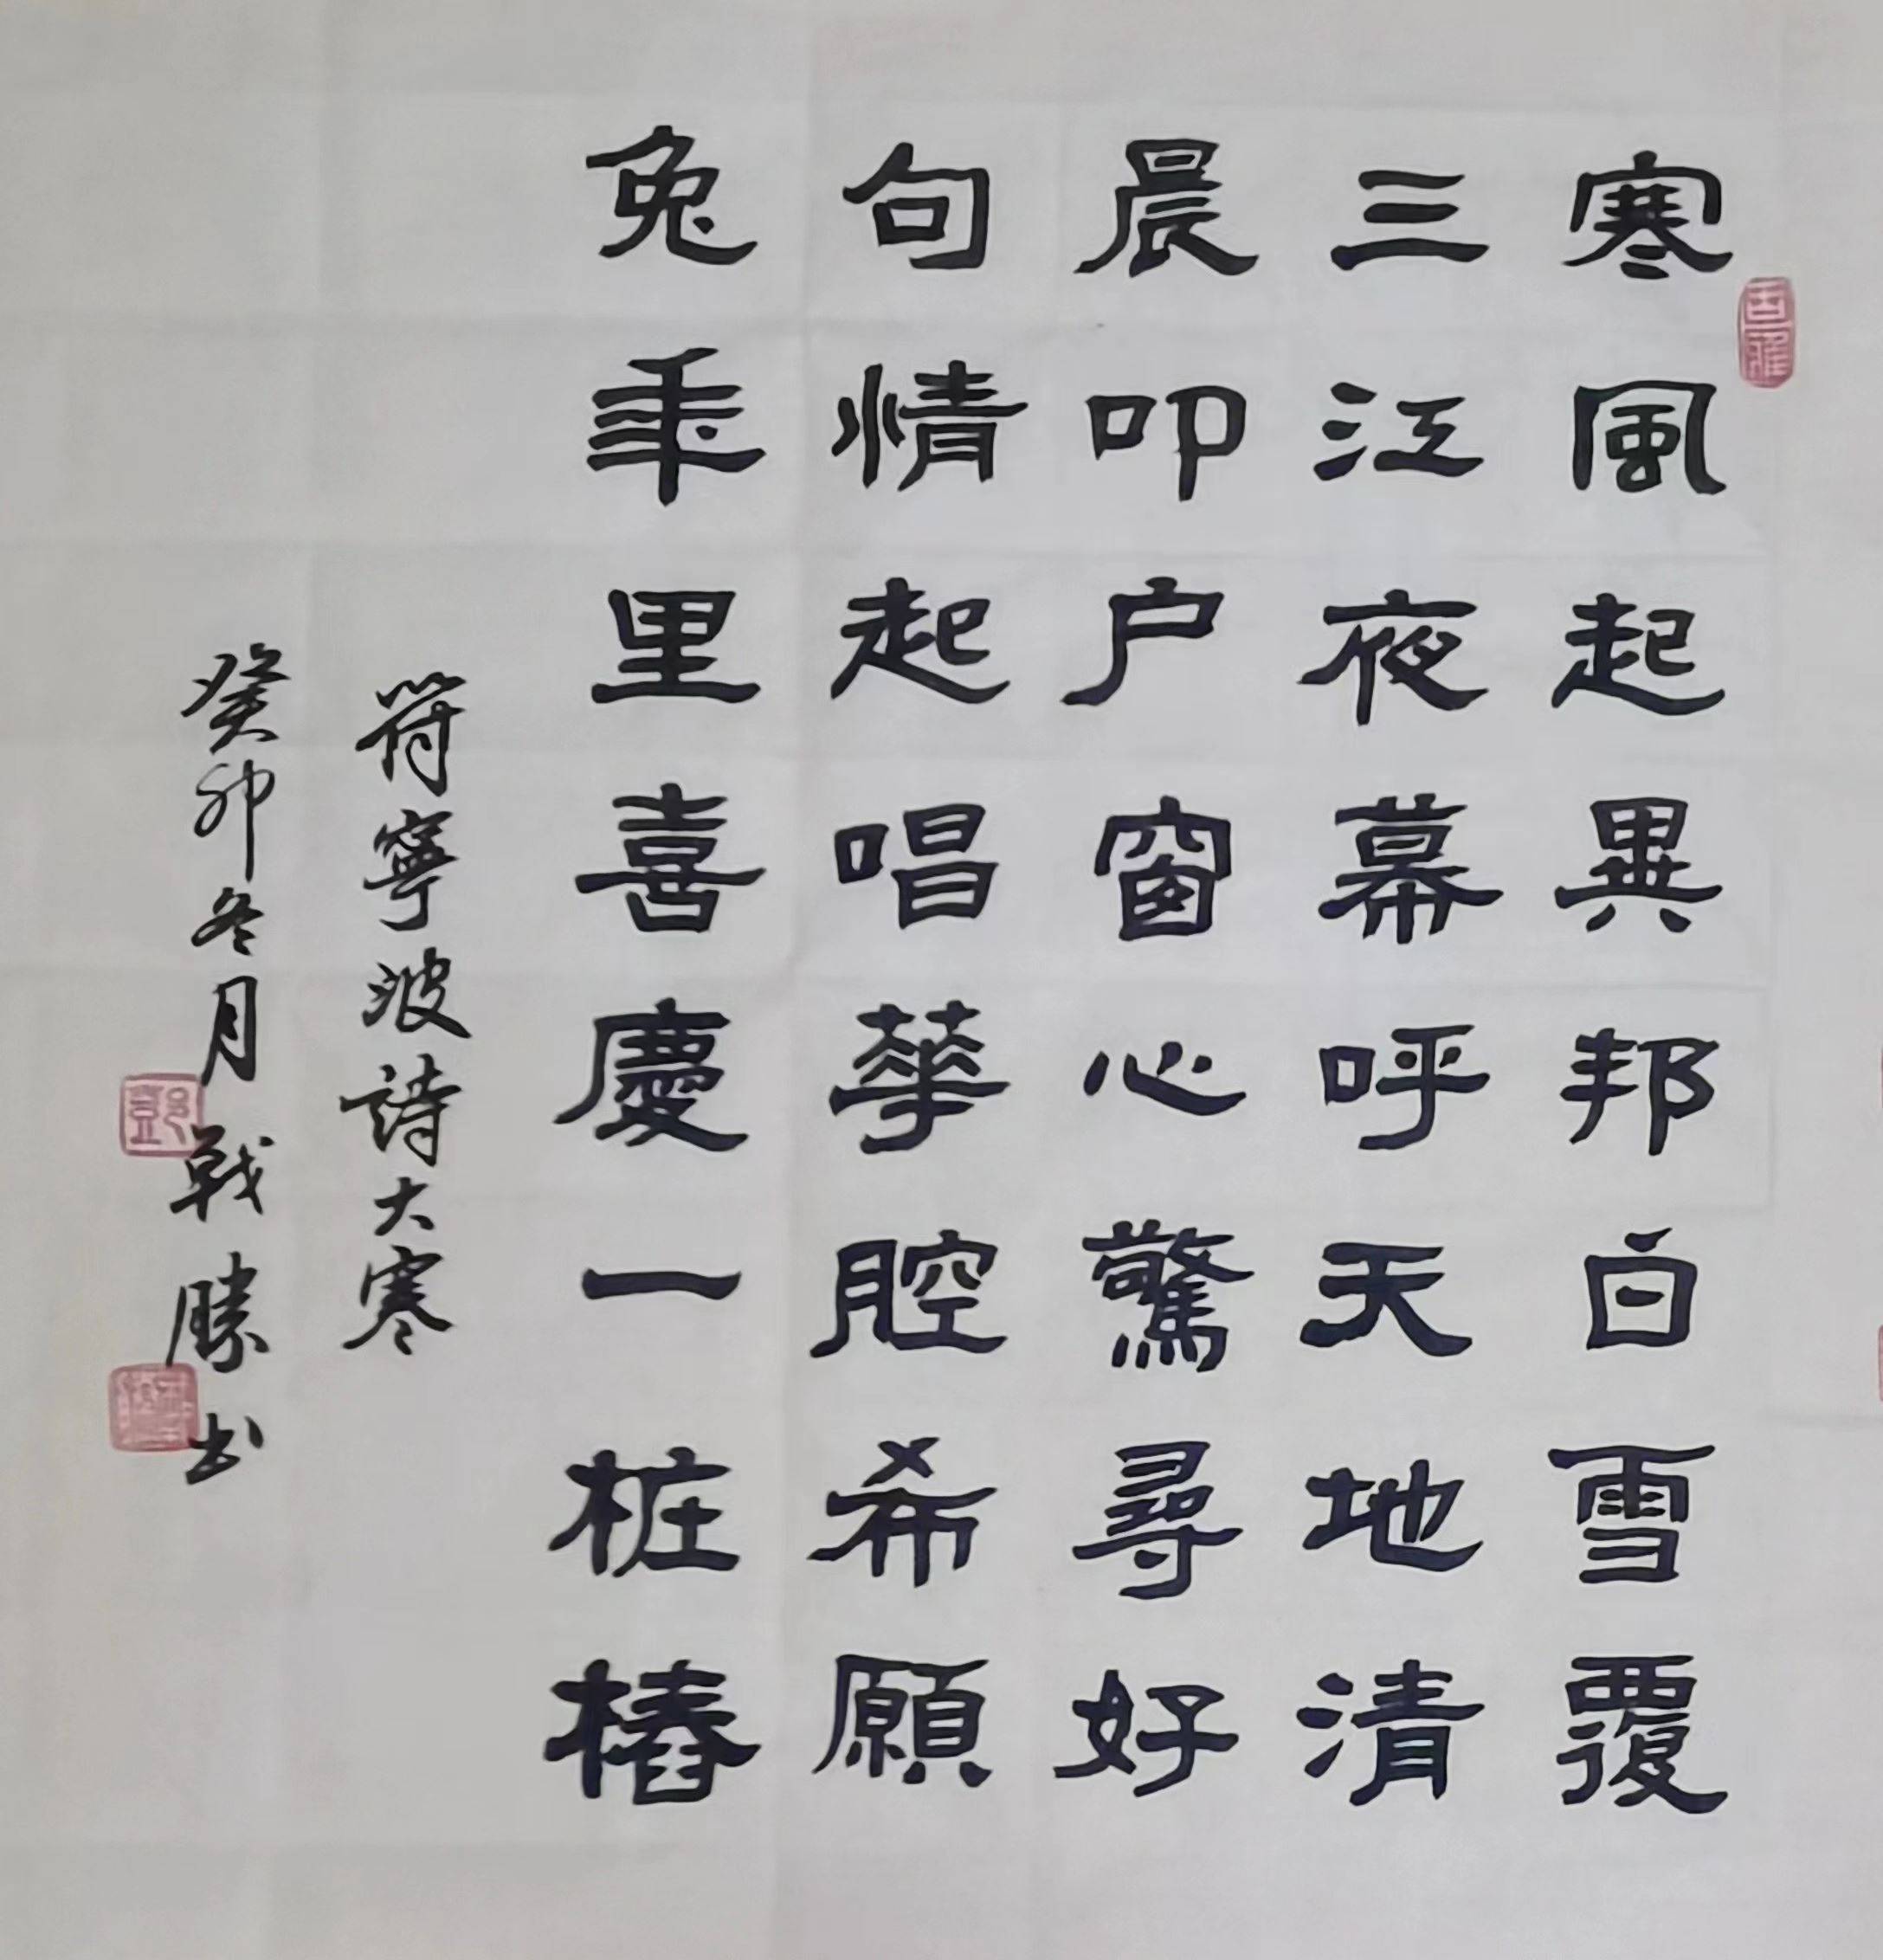 寒風起異邦白雪覆
三江夜幕呼天地清
晨叩户窗心驚尋好
句情起唱華腔希願
兔年里喜慶一桩樁
符寧波詩大寒
癸卯冬月戰勝书